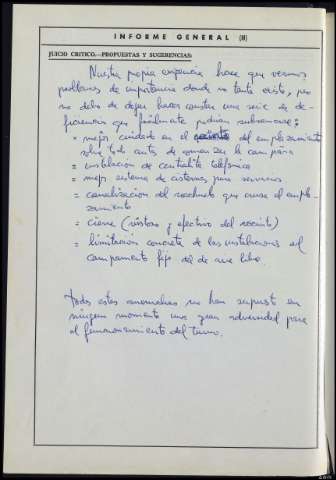 INFORME GENERAL (8)
JUICIO CRITICO.—PROPUESTAS Y SUGERENCIAS:
Nuestra propia exigencia hace que veamos
problemas de importancia donde no tanta existe, pero
no debo de dejar hacer constar una serie de de-
ficiencias que facilmente podrian subsanarse:
= mejor cuidado en el del emplazamiento
sobre todo antes de comenzar la campaña
= instalación de centralita telefónica
= mejor sistema de cisternas para servicios
= canalizacion del riachuelo que cruza el empla-
zamiento
= cierre (rústico y efectivo del recinto)
= limitación concreta de las instalaciones del
campamento fijo del de aire libre
todas estas anomalias no han supuesto en
ningun momento una gran adversidad para
el funcionamiento del turno.